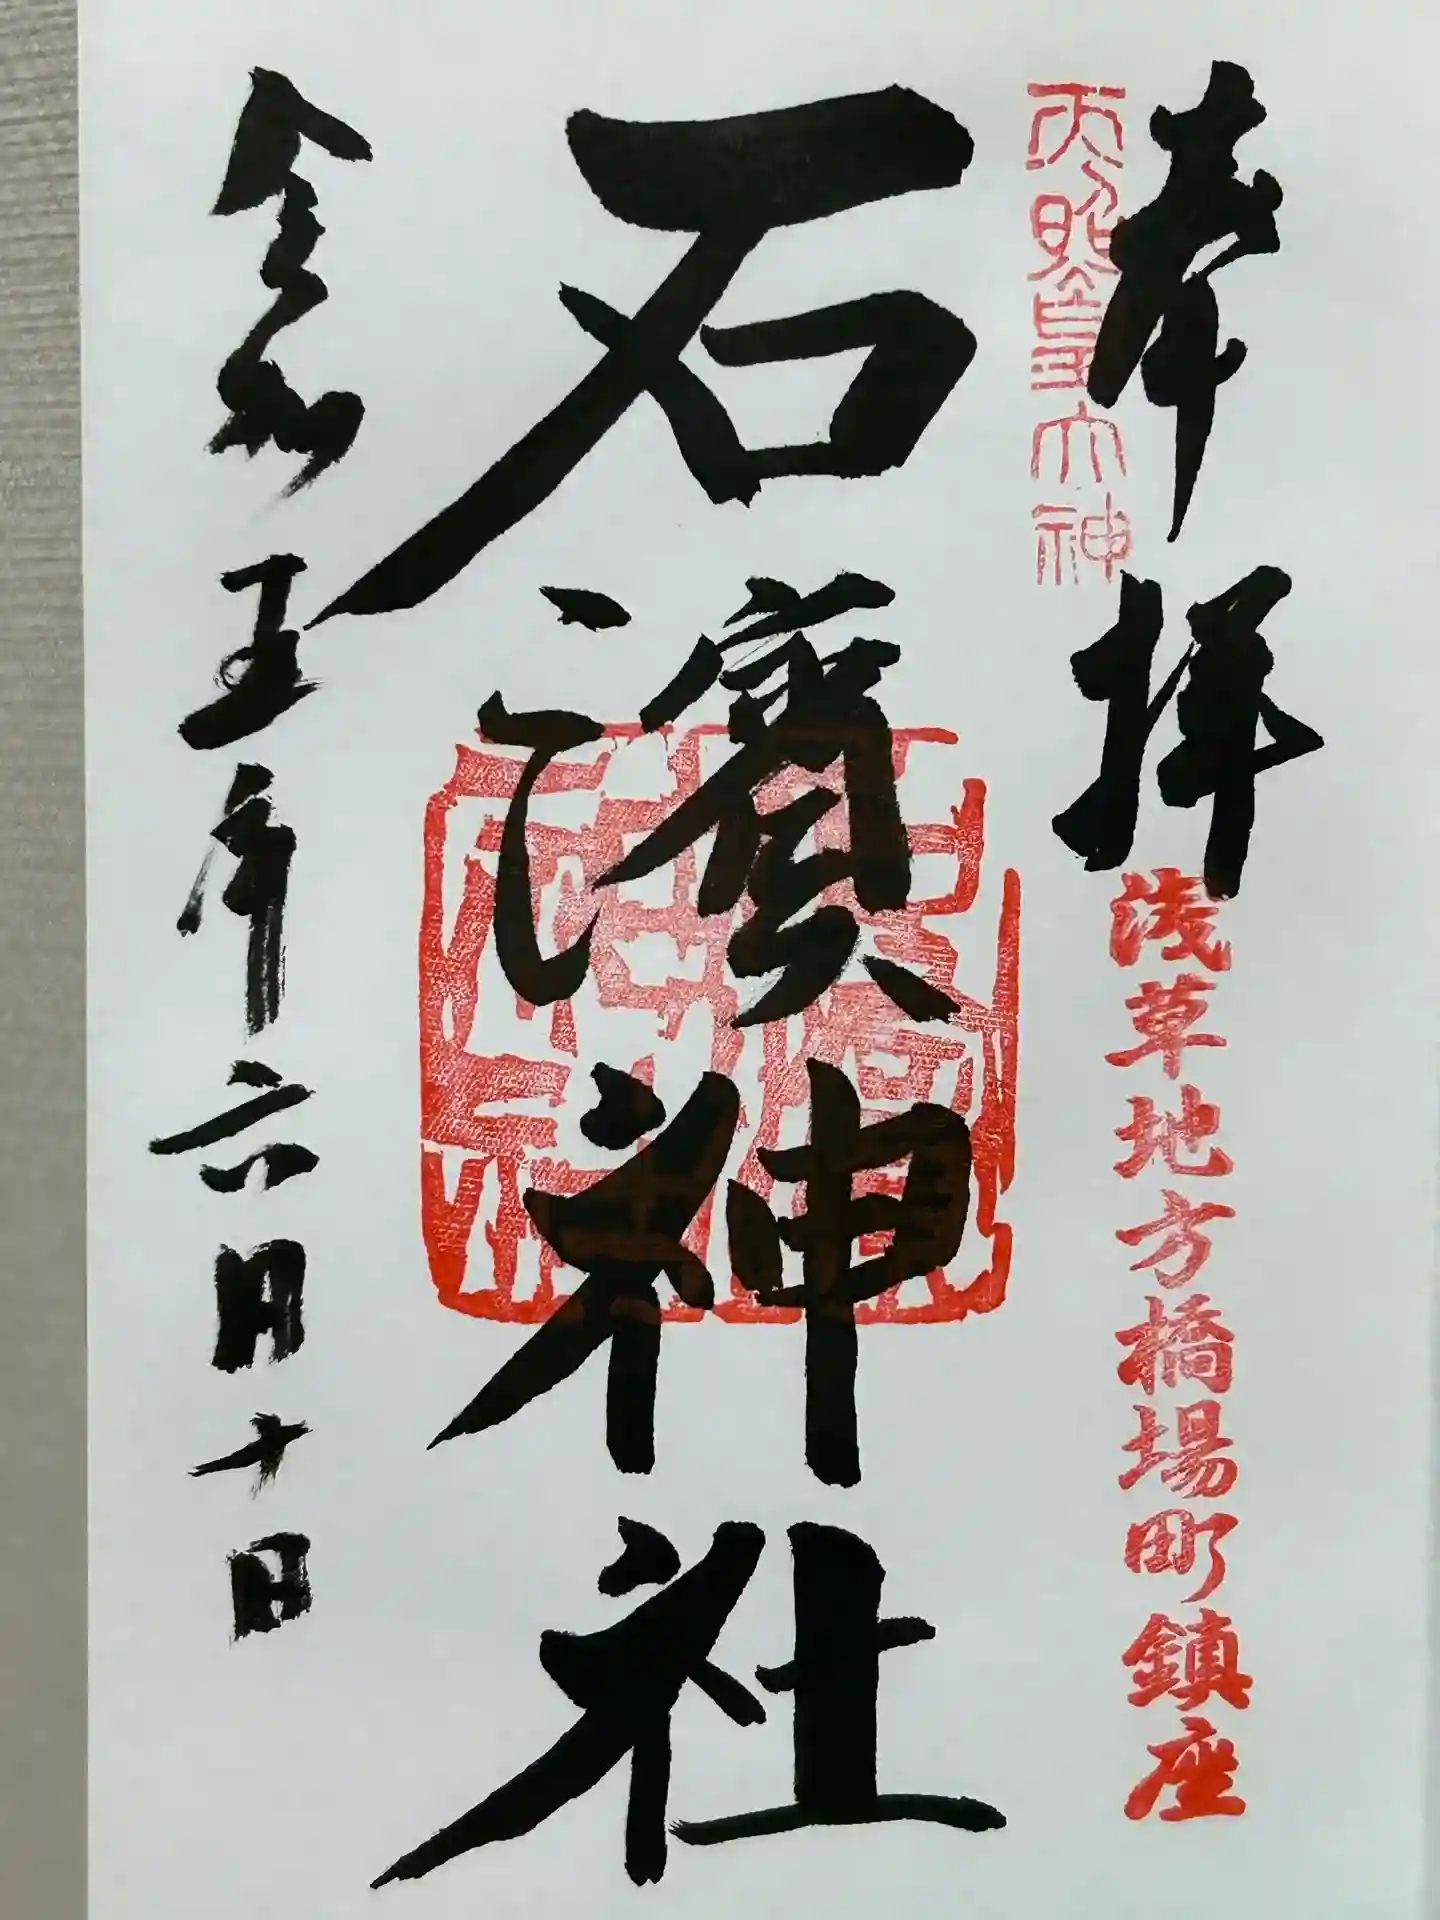 奉拝
天照皇大神
浅草地方橋場町鎮座
石濱神社
令和五年六月十日